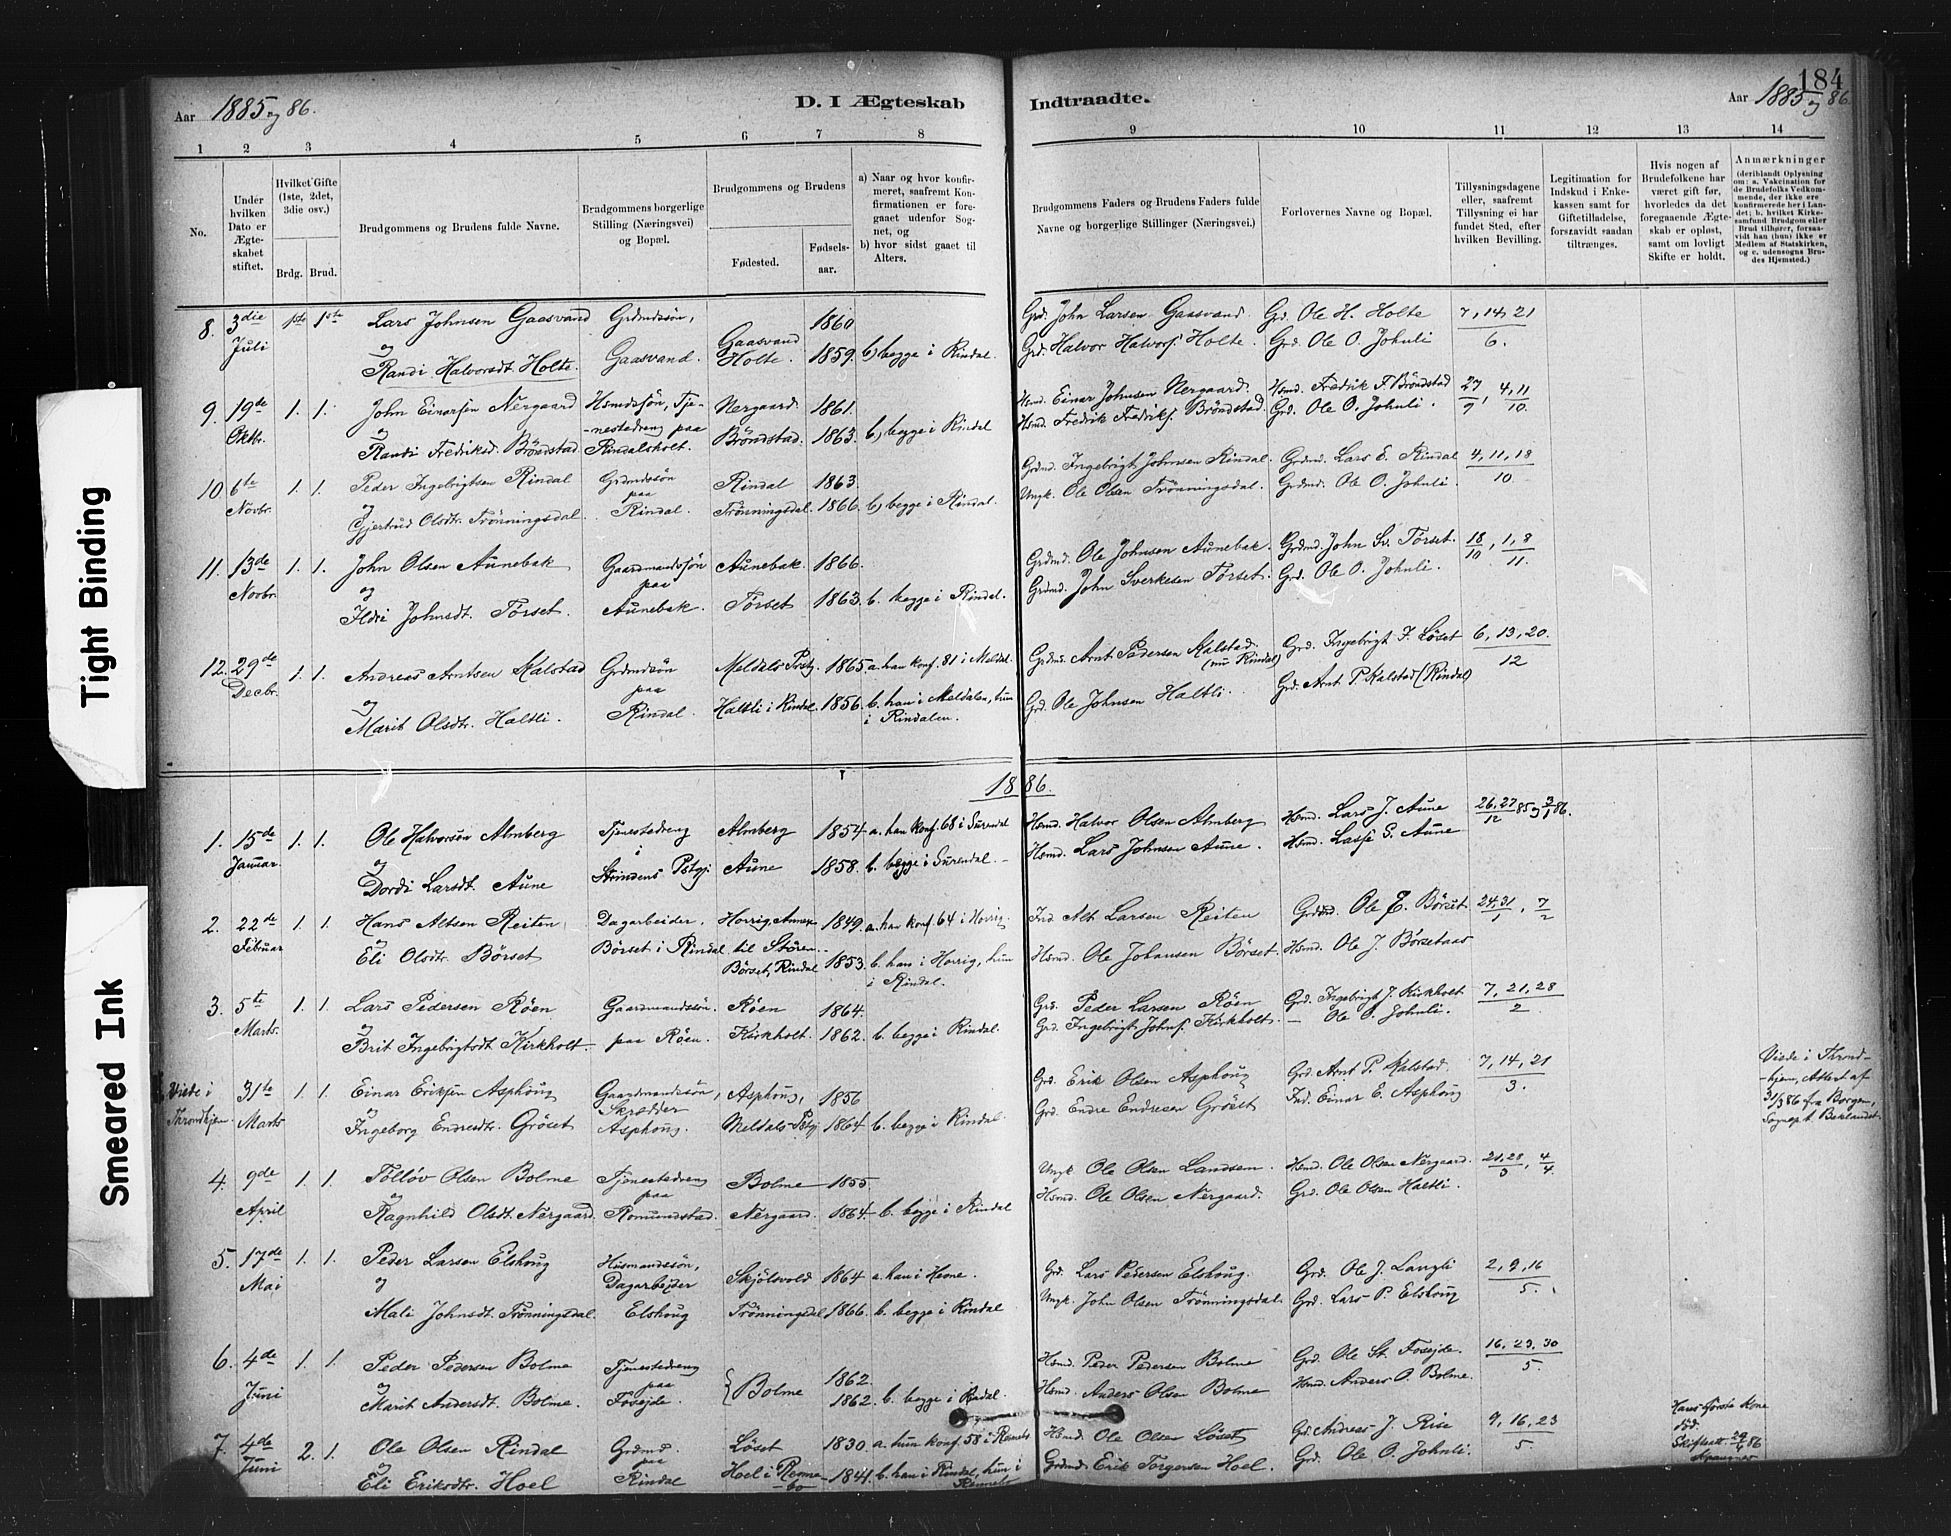 184
Aar 1885 og 86.
D. I Ægteskab Indtraadte.
Aar 1885 og 86.
1 2 3 4 5 6 7 8 9 10 11 12 13 14
No.
Under hvilken Dato er Ægteskabet stiftet.
Hvilket Gifte (1ste, 2det, 3die osv.)
Brdg. Brud.
Brudgommens og Brudens fulde Navne.
Brudgommens borgerlige Stilling (Næringsvei) og Bopæl.
Brudgommens og Brudens
Fødested. Fødsels-aar.
a) Naar og hvor konfir-
meret, saafremt Kon-
firmationen er fore-
gaaet udenfor Sog-
net, og
b) hvor sidst gaaet til
Alters.
Brudgommens Faders og Brudens Faders fulde
Navne og borgerlige Stillinger (Næringsvei.)
Forlovernes Navne og Bopæl.
Tillysningsdagene
eller, saafremt
Tillysning ei har
fundet Sted, efter
hvilken Bevilling.
Legitimation for
Indskud i Enke-
kassen samt for
Giftetilladelse,
forszavidt saadan
tiltrænges.
Hvis nogen af
Brudefolkene har
været gift før,
hvorledes da det
foregaaende Ægte-
skab er opløst,
samt om lovligt
Skifte er holdt.
Anmærkninger
(deriblandt Oplysning
om: a. Vakcination for
de Brudefolks Vedkom-
mende, der ikke ere
konfirmerede her i Lan-
det; b. hvilket Kirke-
samfund Brudgom eller
Brud tilhører, forsaa-
vidt han (hun) ikke er
Medlem af Statskirken,
og c. udensogns Bru-
des Hjemsted.)
8. 3die Juli 1ste 1ste Lars Johnsen Gaasvand og Randi Halvorsdt Holte. Grdmdssön, Gaasvand. Gaasvand 1860 Holte. 1859. b) begge i Rindal. Grd. John Larsen Gaasvand. Grd. Halvor Halvors. Holte. Grd. Ole H. Holte Grd. Ole O. Johnli 7, 14, 21 / 6.
9. 19de Oktbr. 1. 1. John Einarsen Nergaard og Randi Fredriksd. Bröndstad Hsmdssön, Tje-nestedreng paa Rindalsholt. Nergaard 1861. Bröndstad. 1863. b) begge i Rindal Hsmd. Einar Johnsen Nergaard. Hsmd. Fredrik Fredriks. Bröndstad Hsmd. Fredrik F. Bröndstad Grd. Ole O. Johnli. 27/9, 4, 11/10.
10. 6te Novbr. 1. 1. Peder Ingebrigtsen Rindal og Gjertrud Olsdtr. Trönningsdal. Grdmdssön paa Rindal. Rindal 1863. Trönningsdal. 1866. b) begge i Rindal. Grdmd. Ingebrigt Johnsen Rindal. Ungk. Ole Olsen Trönningsdal. Grdmd. Lars E. Rindal Grdmd. Ole O. Johnli. 4, 11, 18 / 10.
11. 13de Novbr. 1. 1. John Olsen Aunebak og Ildri Johnsdt. Torset. Gaardmandssön paa Aunebak. Aunebak. 1866. Torset 1863. b. begge i Rindal. Grdmd. Ole Johnsen Aunebak. Grdmd. John Sverkesen Torset. Grdmd. John Sv. Torset. Grd. Ole O. Johnli. 18/10, 1, 8/11.
12. 29de Decbr. 1. 1. Andreas Arntsen Kalstad og Marit Olsdtr. Haltli. Grdmdssön paa Rindal. Meldals Pstgj. 1865. a. han konf. 81 i Meldal. Haltli i Rindal. 1856. b. han i Meldalen, hun i Rindalen. Grdmd. Arnt Pedersen Kalstad (nu Rindal) Grd. Ole Johnsen Haltli. Grd. Ingebrigt J. Löset Grd. Arnt P. Kalstad (Rindal) 6, 13, 20. / 12
1886.
1. 15de Januar. 1. 1. Ole Halvorsön Almberg og Dordi Larsdt. Aune Tjenestedreng i Strindens Pstgj. Almberg 1854 a. han konf. 68 i Surendal Aune 1858. b. begge i Surendal. Hsmd. Halvor Olsen Almberg Hsmd. Lars Johnsen Aune. Hsmd. Lars J. Aune Hsmd. Lasse S. Aune 26, 27/12 85 og 3/1 86.
2. 22de Februar 1. 1. Hans Altsen Reiten og Eli Olsdtr. Börset Dagarbeider. Börset i Rindal Horrig Annex til Stören. 1849. a. han konf. 64 i Horrig. Börset, Rindal 1853. b. han i Horrig, hun i Rindal. Ind. Alt Larsen Reiten Hsmd. Ole Johansen Börset. Grdmd. Ole E. Börset Hsmd. Ole J. Börsetaas 24, 31/1, 7/2
3. 5te Marts. 1. 1. Lars Pedersen Röen og Brit Ingebrigtsdt Kirkholt. Gaardmandssön. paa Röen. Röen 1864. Kirkholt. 1862. b. begge i Rindal. Grd. Peder Larsen Röen Grd. Ingebrigt Johns. Kirkholt. Grd. Ingebrigt J. Kirkholt — Ole O. Johnli. 7, 21, 28 / 2
Viede i Throndhjem. 31te Marts 1. 1. Einar Eriksen Asphoug og Ingeborg Endresdtr. Gröset Gaardmandssön, Skrædder Asphoug. Asphoug, 1856 Meldals Pstgj. 1864 b. begge i Rindal. Grd. Erik Olsen Asphoug Grd. Endre Endresen Gröset Grd. Arnt P. Kalstad. Ind. Einar E. Asphoug 7, 14, 21 / 3. Viede i Thrond-hjem, Attest af 31/3 86 fra Borgen, Sognep. t. Baklandet.
4. 9de April 1. 1. Tollöv Olsen Bolme og Ragnhild Olsdt. Nergaard. Tjenestedreng paa Romundstad. Bolme 1855. Nergaard. 1864. b. begge i Rindal Ungk. Ole Olsen Landsem. Hsmd. Ole Olsen Nergaard. Hsmd. Ole Olsen Nergaard. Grd. Ole Olsen Haltli. 21, 28/3, 4/4.
5. 17de Mai 1. 1. Peder Larsen Elshoug og Mali Johnsdt. Trönningsdal. Husmandssön, Dagarbejder Elshoug Skjölsvold 1864 a. han i Hevne. Trönningsdal 1866. b. begge i Rindal Grd. Lars Pedersen Elshoug. Ungk. John Olsen Trönningsdal. Grd. Ole J. Langli Grd. Lars P. Elshoug 2, 9, 16 / 5.
6. 4de Juni 1. 1. Peder Pedersen Bolme og Marit Andersdt. Bolme. Tjenestedreng paa Fosejde. Bolme 1862. 1862. b. begge i Rindal. Hsmd. Peder Pedersen Bolme Hsmd. Anders Olsen Bolme Grd. Ole St. Fosejde. Hsmd. Anders O. Bolme. 16, 23, 30 / 5.
7. 4de Juni 2. 1. Ole Olsen Rindal og Eli Eriksdtr. Hoel Grdmd. paa Rindal Löset 1830. a. hun konf. 58 i Rennebo Hoel i Renne-bo 1841. b. han i Rindal, hun i Rennebo Hsmd. Ole Olsen Löset Grdmd. Erik Torgersen Hoel. Grd. Andreas J. Rise Grd. Ole O. Johnli. 9, 16, 23 / 5. Hans første Kone död. Skifteatt. 86
Tight Binding
Smeared Ink